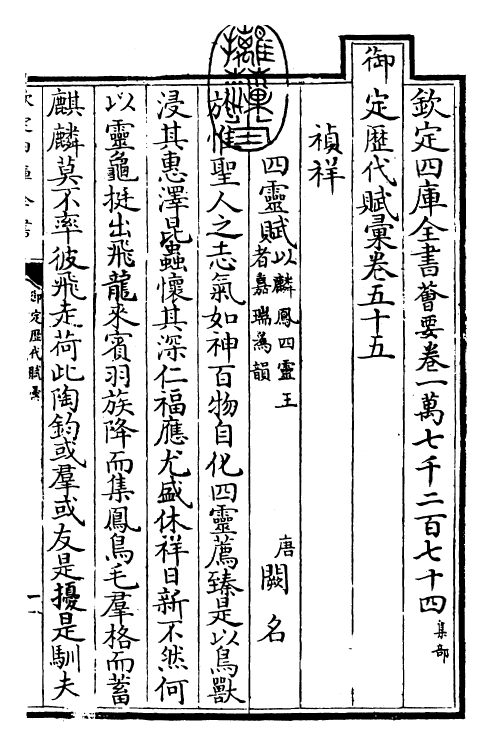 欽定四庫全書薈要卷一萬七千二百七十四 集部
御定歷代賦彙卷五十五
禎祥
四靈賦 以麟鳳四靈王者嘉瑞為韻 唐 闕名
於惟聖人之志氣如神百物自化四靈薦臻是以鳥獸
浸其惠澤昆蟲懷其深仁福應尤盛休祥日新不然何
以靈龜挺出飛龍來賓羽族降而集鳳鳥毛羣格而蓄
麒麟莫不率彼飛走荷此陶鈞或羣或友是擾是馴夫
欽定四庫全書
御定歷代賦彙
一